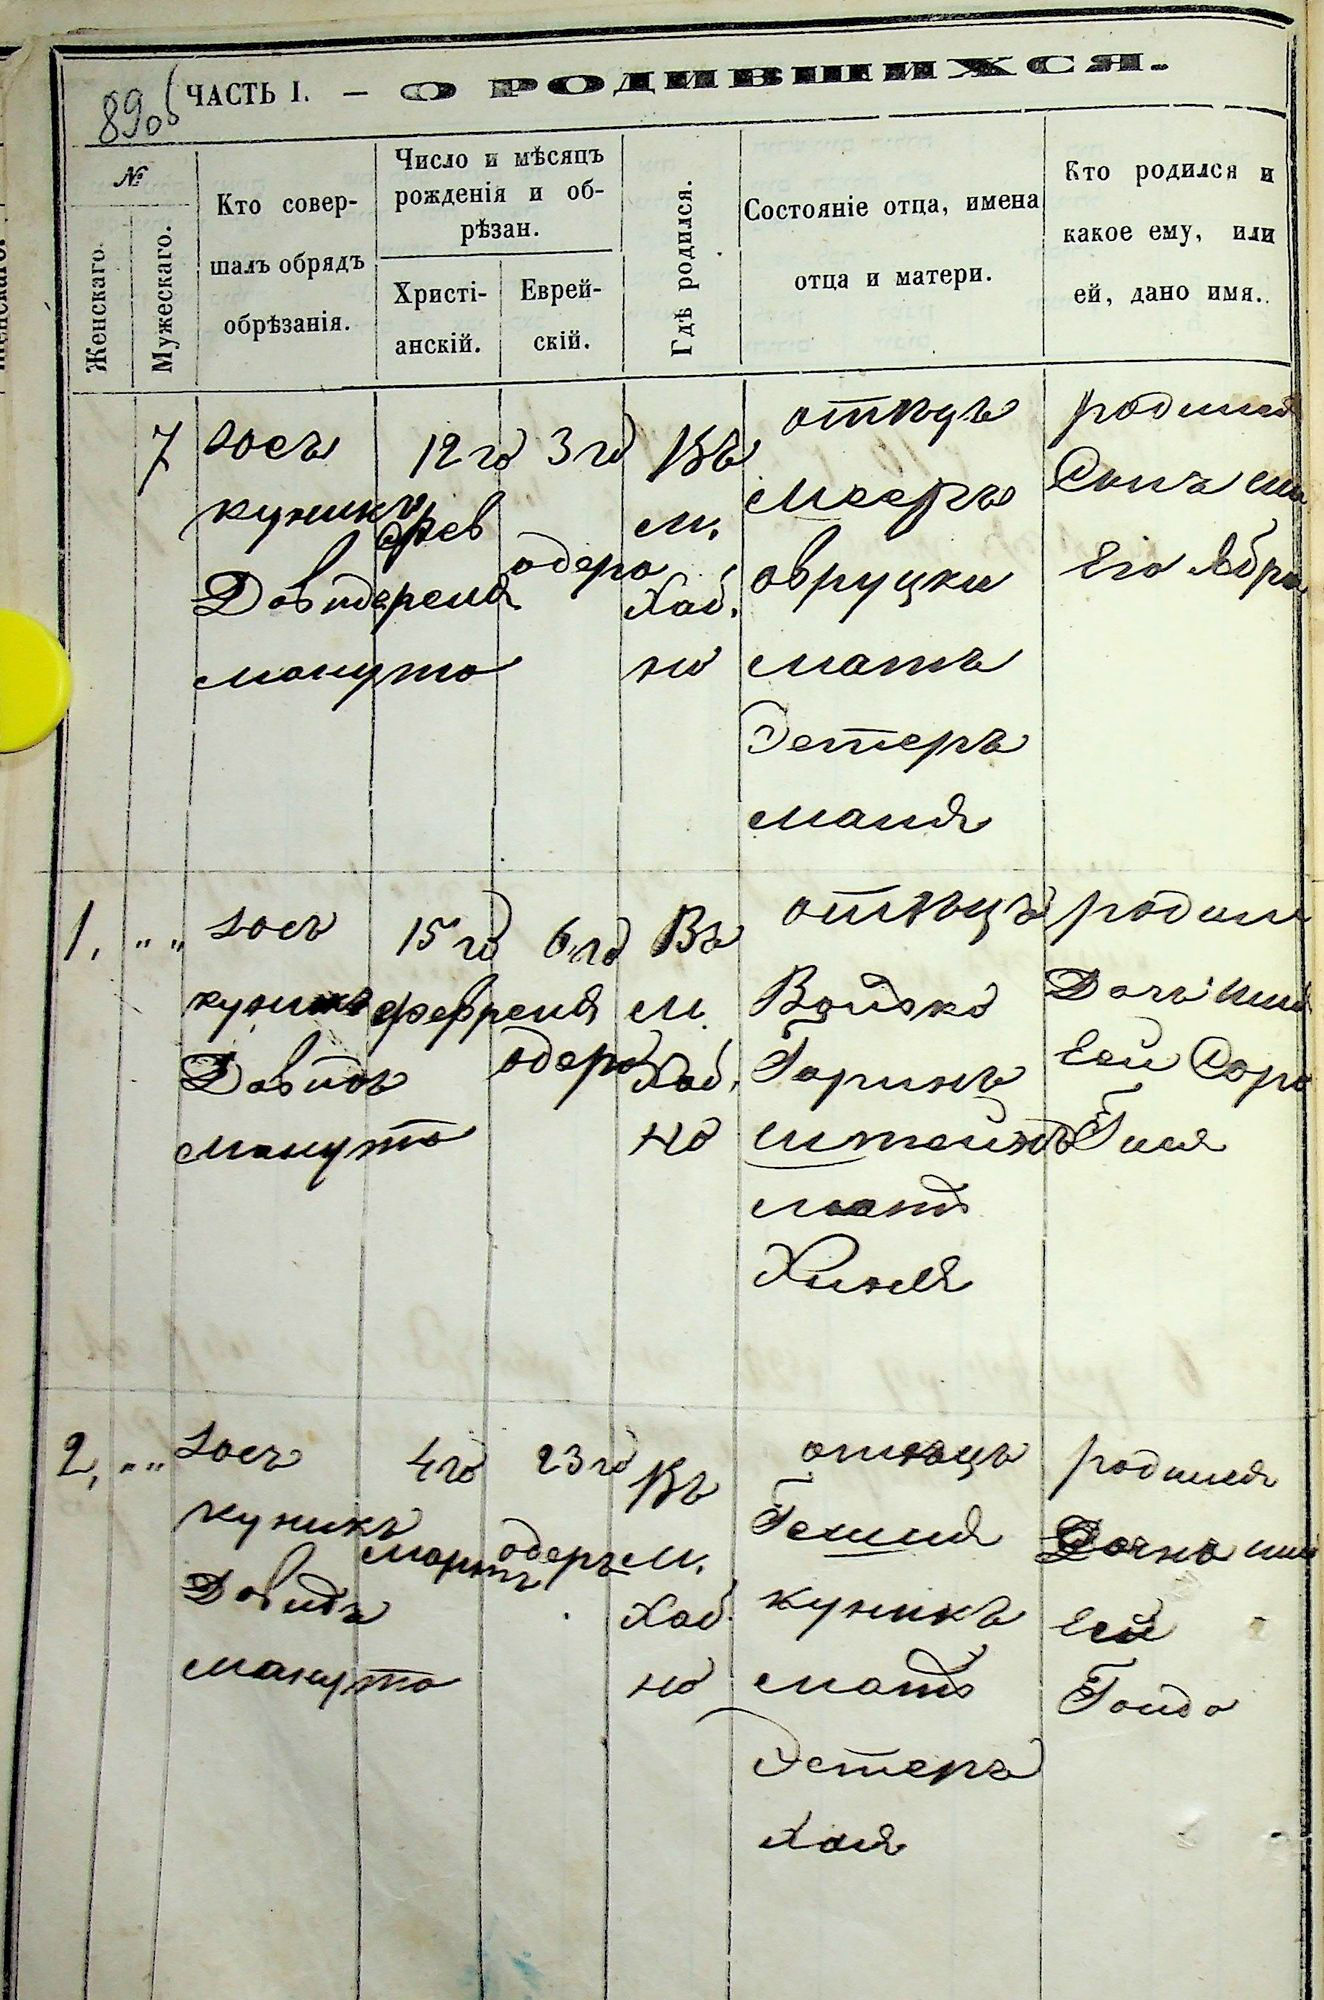 89об
ЧАСТЬ I. — О РОДИВШИХСЯ.
№
Женскаго.
Мужескаго.
Кто совер-
шалъ обрядъ
обрѣзанія.
Число и мѣсяцъ
рожденія и об-
рѣзан.
Христі-
анскій.
Еврей-
скій.
Гдѣ родился.
Состояніе отца, имена
отца и матери.
Кто родился и
какое ему, или
ей, дано имя.
7
Іосъ
куникъ
Довид
манута
12го
фев
реля
3го
адера
Въ
м.
Хаб.
но
отецъ
Мееръ
овруцки
мать
Эстеръ
маня
родился
Сынъ
его Абра
1, " "
Іосъ
куникъ
Довидъ
манута
15го
февреля
6го
адера
Въ
м.
Хаб.
но
отецъ
Горинъ
штейнъ
мать
Хиня
родил
Дочь имя
ей Сора
Гитля
2, " "
Іосъ
куникъ
Довидъ
манута
4го
мартъ
23го
адеръ
Въ
м.
Хаб.
но
отецъ
куникъ
мать
Эстеръ
хая
родился
Дочка имя
ей
Голда